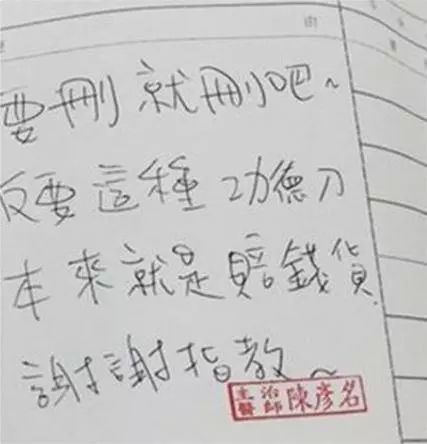 要刪 就刪吧~
反要 這種 功德刀
本來就是賠錢貨
謝謝指教~
主治醫師 陳彥名